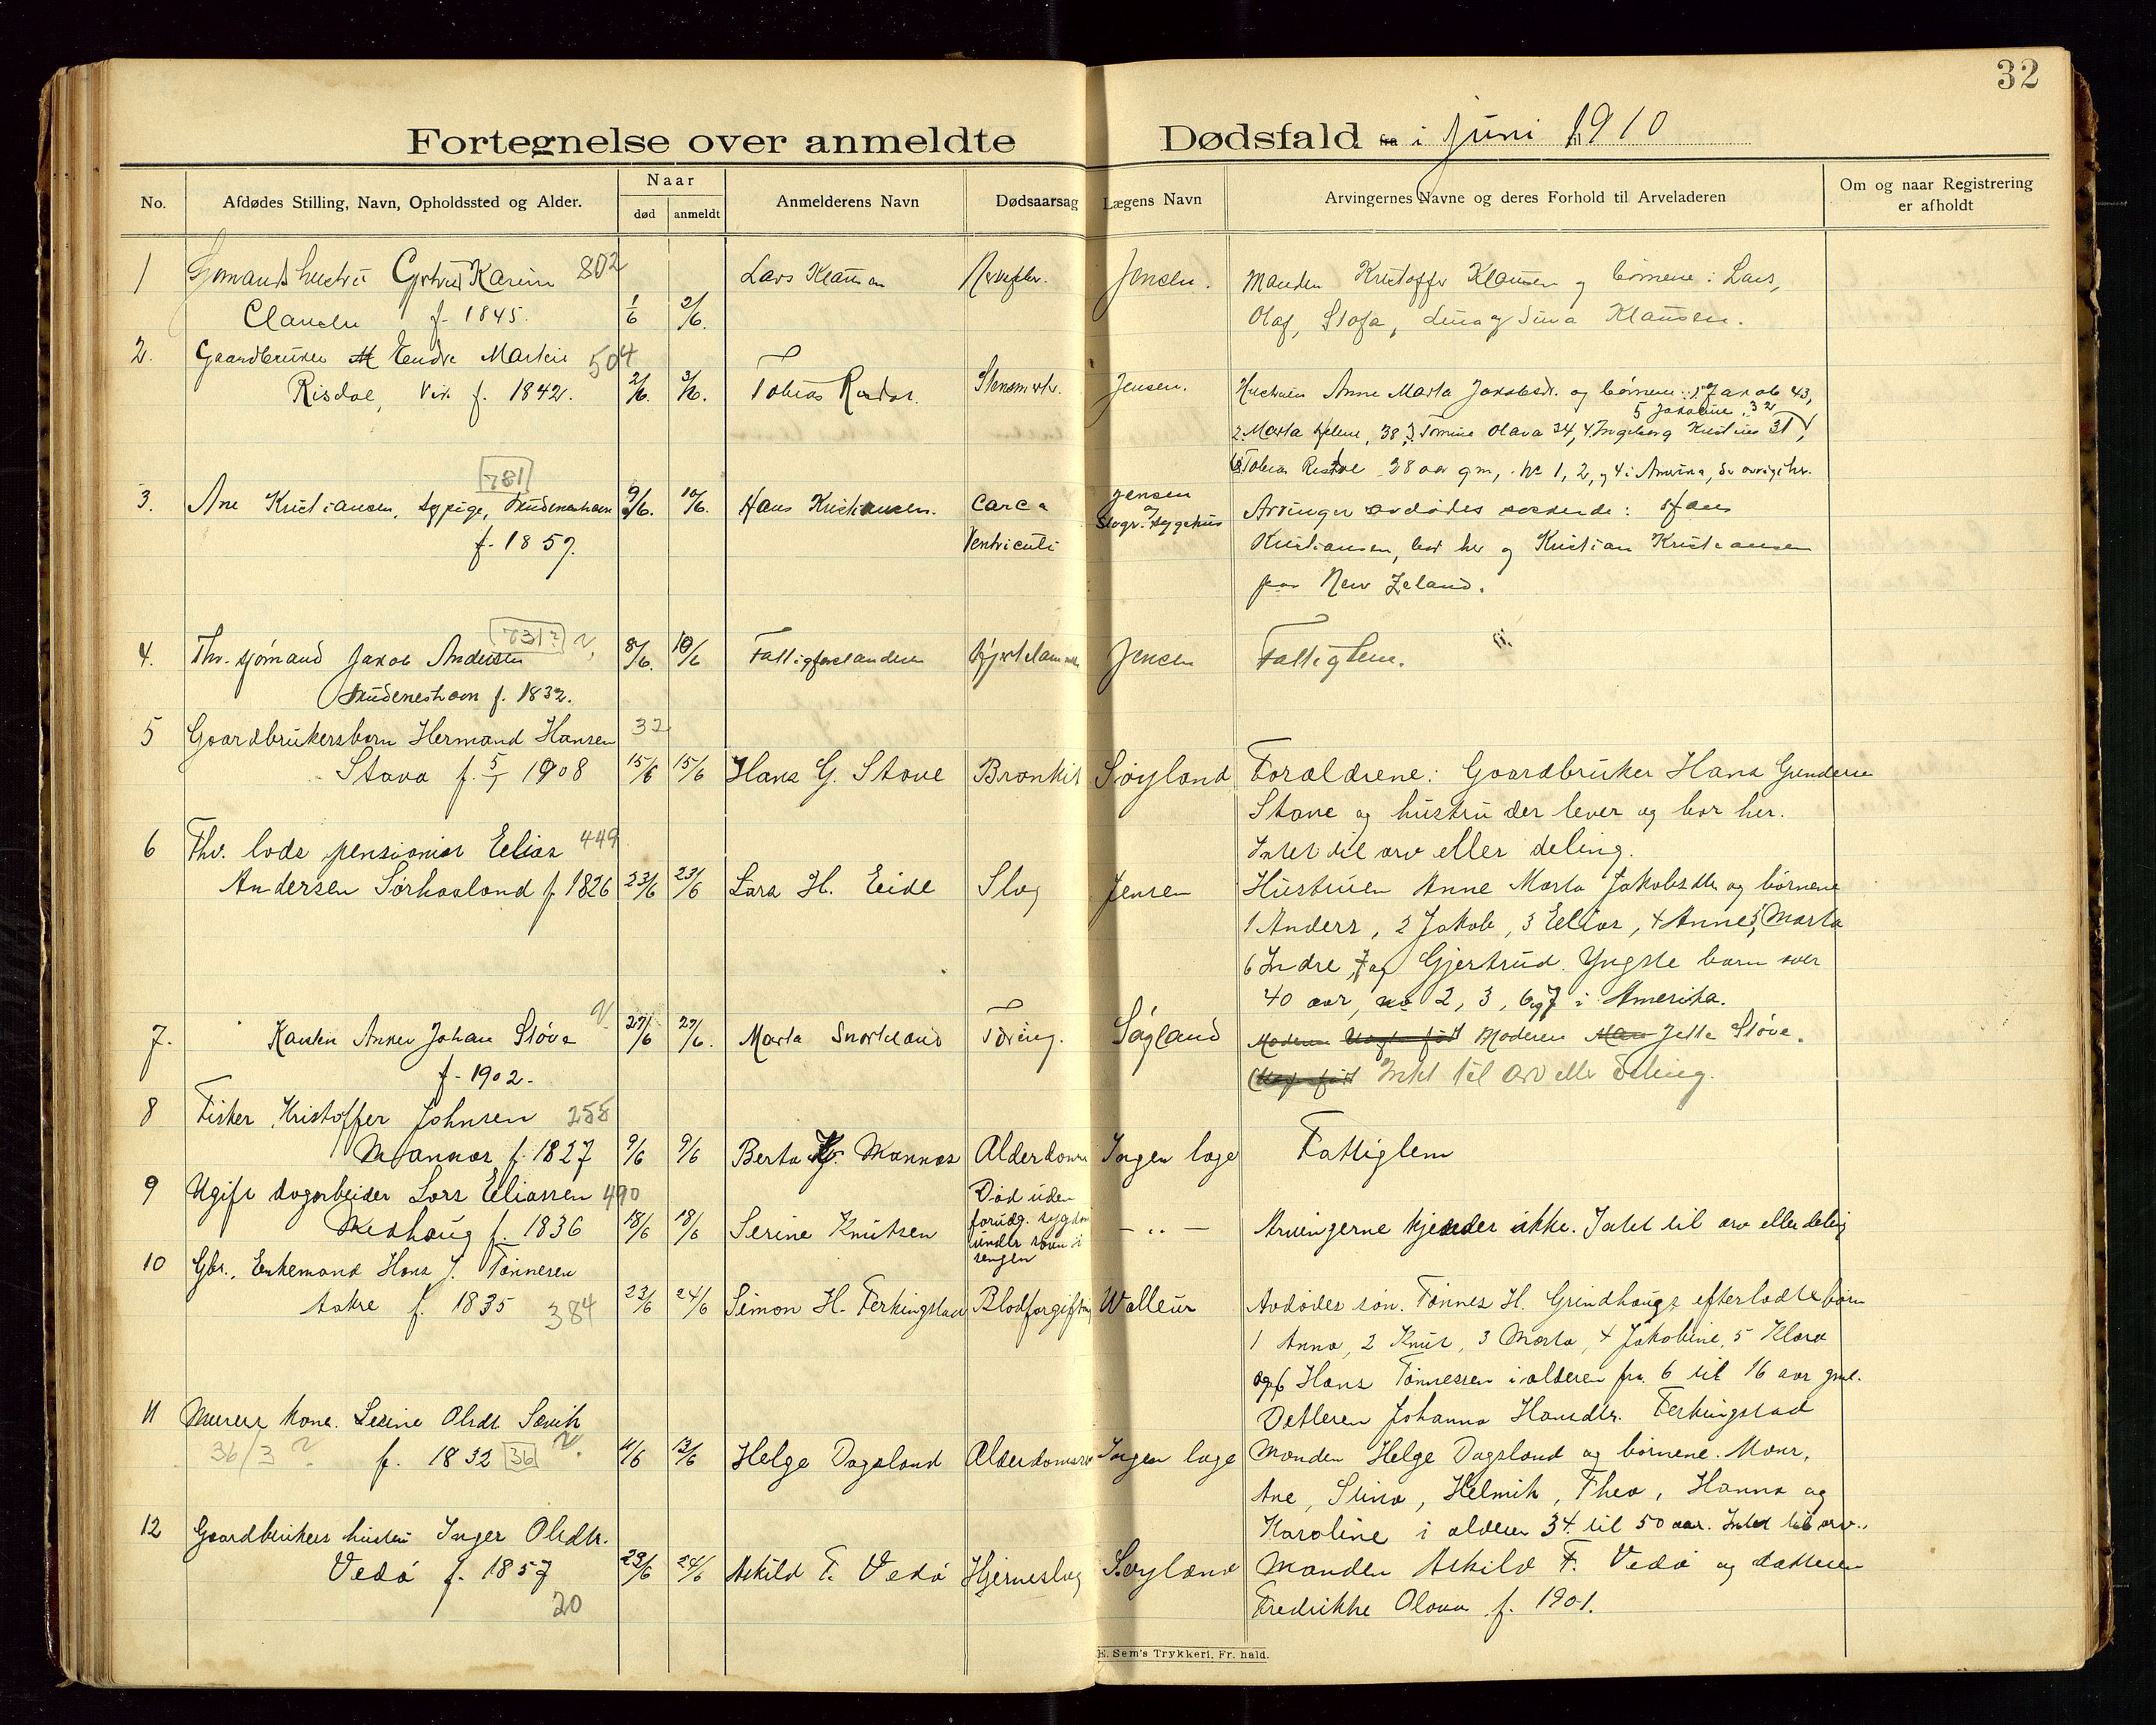 32
Fortegnelse over anmeldte Dødsfald i Juni 1910
No. Afdødes Stilling, Navn, Opholdssted og Alder. Naar død anmeldt Anmelderens Navn Dødsaarsag Lægens Navn Arvingernes Navne og deres Forhold til Arveladeren Om og naar Registrering er afholdt
1 Karin 802 Lars Jensen. Manden Kristoffer Klausen og børnene: Lars,
f. 1845. 1/6 2/6. Olaf, Klausen.
2. Gaardbruker Endre Martin 504
Risdal, Vik f. 1842. 2/6. 3/6. Tobias Jensen. Anne Marta Jakobsdr. og børnene: 1 Jakob 43,
5 Jakobine 32
2. Marta Helene, 38, 3 Tomine Olava 34, 4. Ingeborg 31,
Tobias 28 aar gm, No 1, 2, og 4 i
781
3. Ane Kristiansen, sypige, Skudeneshavn 9/6. 10/6. Hans Kristiansen. Cancer Ventriculi Jensen og Stvgr. sygehus Arvinger avdødes
f. 1857. Kristiansen, bor her og Kristian Kristiansen
paa New Zeland.
731?
4. Fhv. sjømand Jakob Andersen 8/6. 10/6 Fattigforstanderen Jensen Fattiglem.
Skudeneshavn f. 1832.
5 Gaardbrukersbarn Hermand Hansen 32
Stava f. 5/1 1908 15/6 15/6 Hans G. Stave Bronkit Søyland Forældrene: Gaardbruker Hans
Stave og hustru der lever og bor her.
Intet til arv eller deling.
6 Fhv. lods pensionist Elias 449
Andersen Sørhaaland f. 1826 23/6 23/6 Lars H. Eide Slag Jensen Hustruen Anne Marta Jakobsdtr og børnene
1 Anders, 2 Jakob, 3 Elias, 4 Anne, 5 Marta
6 Indre, 7 og Gjertrud. Yngste barn over
40 aar, no 2, 3, 6 og 7 i Amerika.
7. Johan Støve 27/6 27/6. Marta Snortland Tæring. Søyland Moderen Moderen Jette Støve.
f. 1902. Intet til arv eller deling.
8 Fisker Kristoffer Johnsen 258
Mannes f. 1827 9/6 9/6 Berta Mannes Alderdom Ingen læge Fattiglem
9 Ugift dagarbeider Lars Eliassen 490
f. 1836 18/6 18/6 Serine Knutsen Død uden forudg. sygdom under søvn i sengen — .. — Arvingerne kjendes ikke. Intet til arv eller deling
10 Gbr., Enkemand Hans J. Tønnesen
Aakre f. 1835 384 23/6 24/6 Simon H. Ferkingstad Blodforgiftning Walleur Avdødes søn. Tønnes H. Grindhaugs efterladte børn
1 Anna, 2 Knut, 3 Marta, 4 Jakobine, 5 Klara
og 6 Hans Tønnessen i alderen fra 6 til 16 aar gml.
Datteren Johanna Hansdtr. Ferkingstad
11 Murer kone. Serine Olsdt.
36/3 ? f. 1832 36 11/6 13/6 Helge Dagsland Alderdomssv. Ingen læge Manden Helge Dagsland og børnene. Mons,
Ane, Stina, Helmik, Thea, Hanna og
Karoline i alderen 34 til 50 aar. Intet til arv.
12 Gaardbrukers hustru Inger Olsdtr.
Vedø f. 1857 23/6 24/6 Askild F. Vedø Hjerneslag Søyland Manden Askild F. Vedø og datteren
20 Fredrikke Olava f. 1901.
E. Sem's Trykkeri, Fr. hald.